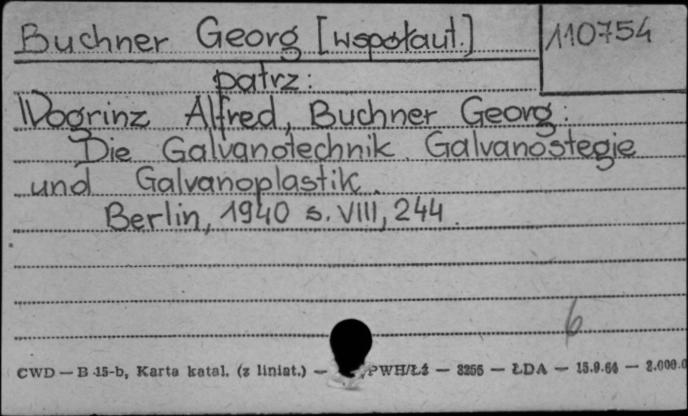 Buchner Georg [współaut.] 110754
patrz:
Wogrinz Alfred, Buchner Georg:
Die Galvanotechnik. Galvanostegie
und Galvanoplastik.
Berlin, 1940 s. VIII, 244.
6
CWD — B 15-b, Karta katal. (z liniat.) — PWH/Łż — 3256 — ŁDA — 15.9.64 — 2.000.0